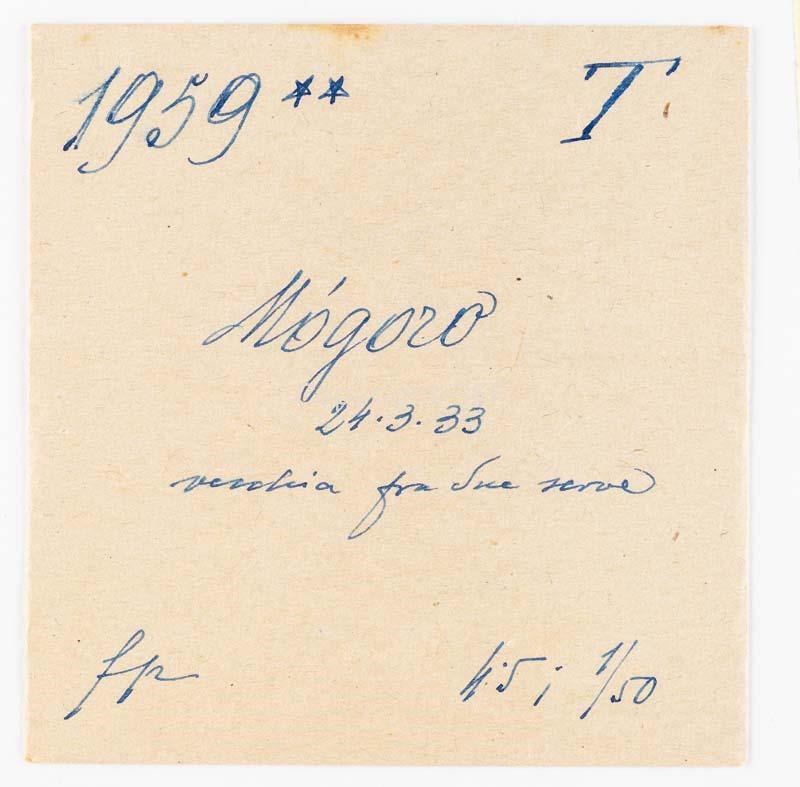 1959 ** T
Mógoro
24.3.33
vecchia fra due serve
fp 4.5 ; 1/50